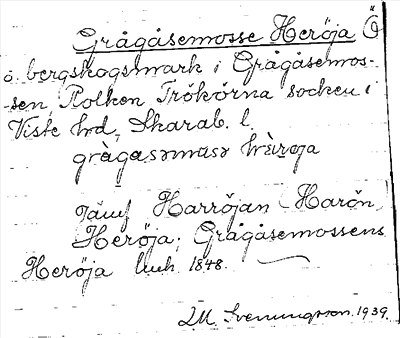 Grågåsemosse Heröja Ö
ö. bergskogsmark i Grågåsemos-
-sen, Rolken Trökörna socken i
Viste hd, Skarab. l.
gràgasəmusə hæ̀rɷja
Jämf Harröjan Harön
Heröja; Grågåsemossens
Heröja luh. 1848.
LM. Svenungsson. 1939.